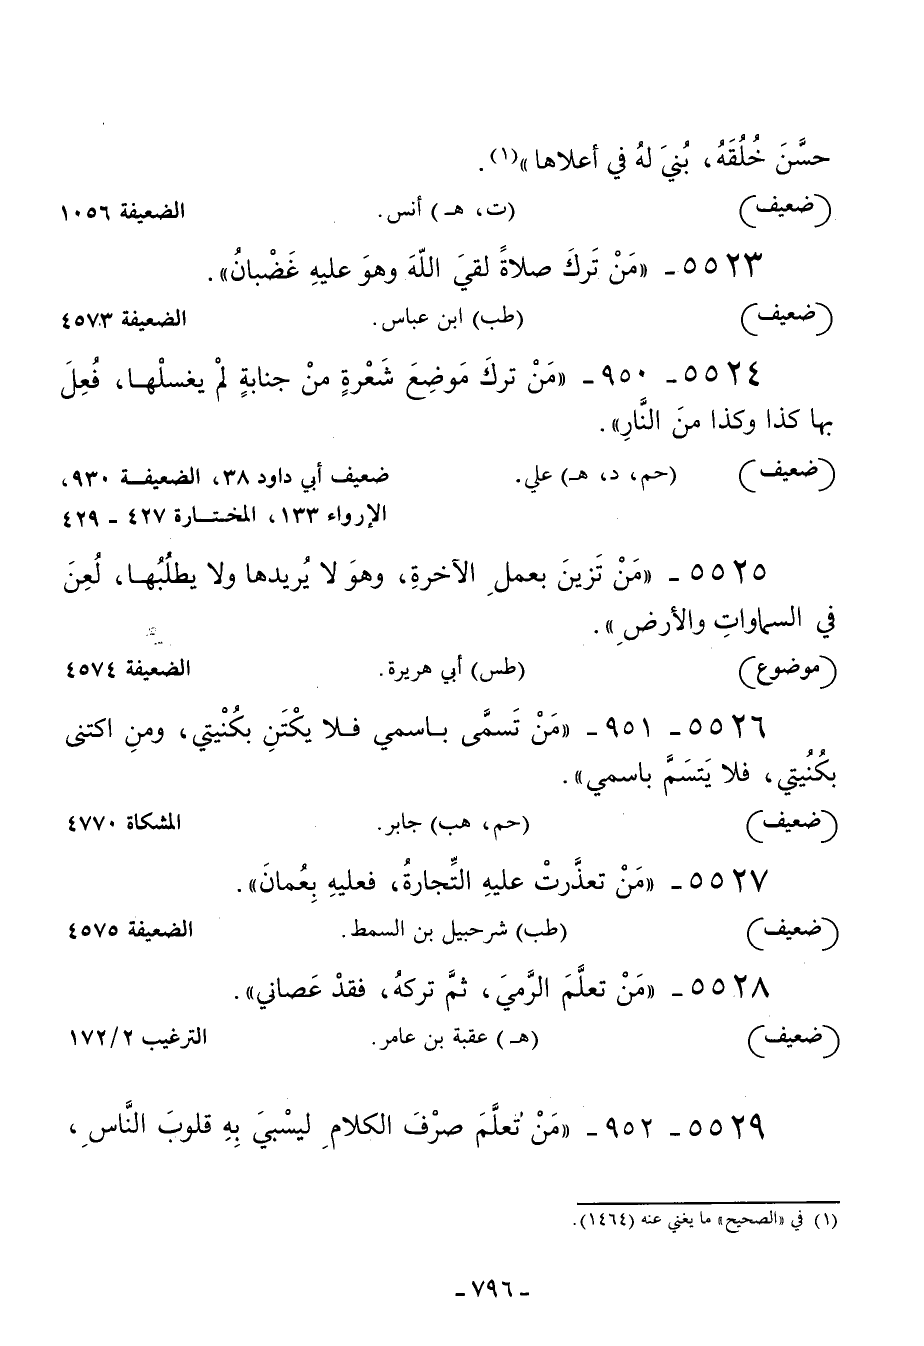 حسَّنَ خُلُقَهُ، بُنيَ لهُ في أعلاها»(١).
(ضعيف) (ت، هـ) أنس. الضعيفة ١٠٥٦
٥٥٢٣ـ «مَنْ تَركَ صلاةً لقيَ اللّهَ وهوَ عليهِ غَضْبانُ».
(ضعيف) (طب) ابن عباس. الضعيفة ٤٥٧٣
٥٥٢٤ـ ٩٥٠ـ «مَنْ تركَ مَوضِعَ شَعْرةٍ منْ جنابةٍ لمْ يغسلْهـا، فُعِلَ
بها كذا وكذا منَ النَّارِ».
(ضعيف) (حم، د، هـ) علي. ضعيف أبي داود ٣٨، الضعيفـة ٩٣٠،
الإرواء ١٣٣، المختـارة ٤٢٧ - ٤٢٩
٥٥٢٥ـ «مَنْ تَزينَ بعملِ الآخرةِ، وهوَ لا يُريدها ولا يطلُبُهـا، لُعِنَ
في السماواتِ والأرضِ».
(موضوع) (طس) أبي هريرة. الضعيفة ٤٥٧٤
٥٥٢٦ـ ٩٥١ـ «مَنْ تَسمَّى بـاسمي فـلا يكْتَنِ بكُنْيتي، ومنِ اكتنى
بكُنُيتي، فلا يَتسَمَّ باسمي».
(ضعيف) (حم، هب) جابر. المشكاة ٤٧٧٠
٥٥٢٧ـ «مَنْ تعذَّرتْ عليهِ التِّجارةُ، فعليهِ بِعُمانَ».
(ضعيف) (طب) شرحبيل بن السمط. الضعيفة ٤٥٧٥
٥٥٢٨ـ «مَنْ تعلَّمَ الرَّميَ، ثمَّ تركهُ، فقدْ عَصاني».
(ضعيف) (هـ) عقبة بن عامر. الترغيب ١٧٢/٢
٥٥٢٩ـ ٩٥٢ـ «مَنْ تُعلَّمَ صرْفَ الكلامِ ليسْبيَ بِهِ قلوبَ النَّاسِ،
(١) في «الصحيح» ما يغني عنه (١٤٦٤).
- ٧٩٦ -